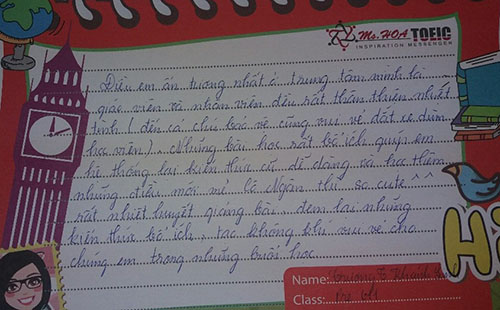 Ms. HOA TOEIC
INSPIRATION MESSENGER
Điều em ấn tượng nhất ở trung tâm mình là
giáo viên và nhân viên đều rất thân thiện nhiệt
tình (đến cả chú bảo vệ cũng vui vẻ dắt xe dùm
học viên). Những bài học rất bổ ích giúp em
hệ thống lại kiến thức cũ dễ dàng và học thêm
những điều mới mẻ. Cô Ngân thì so cute ^^
rất nhiệt huyết giảng bài, đem lại những
kiến thức bổ ích, tạo không khí vui vẻ cho
chúng em trong những buổi học.
Hi
Name:
Class: